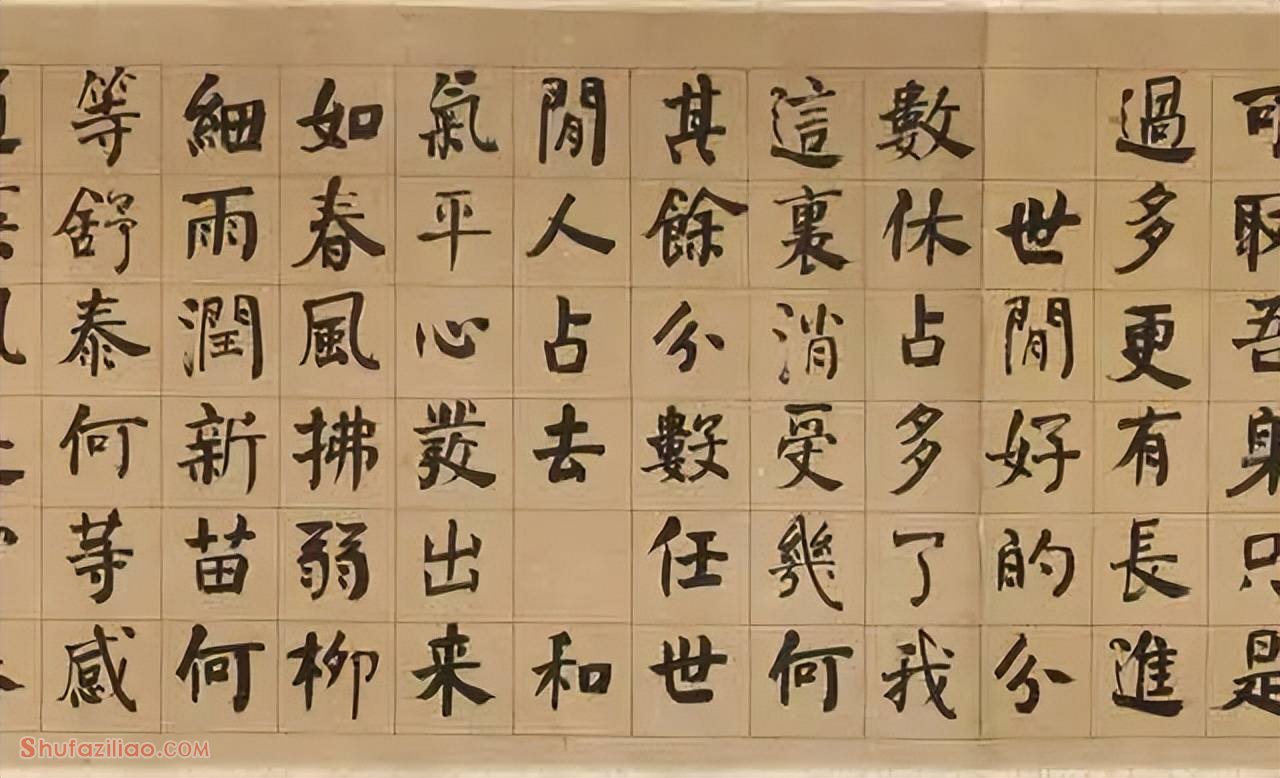 可吾只是
過多更有長進
世閒好的分
數休占多了我
這裏消受幾何
其餘分數任世
閒人占去 和
氣平心發出来
如春風拂弱柳
細雨潤新苗何
等舒泰何等感
SHUFAZILIAO.COM